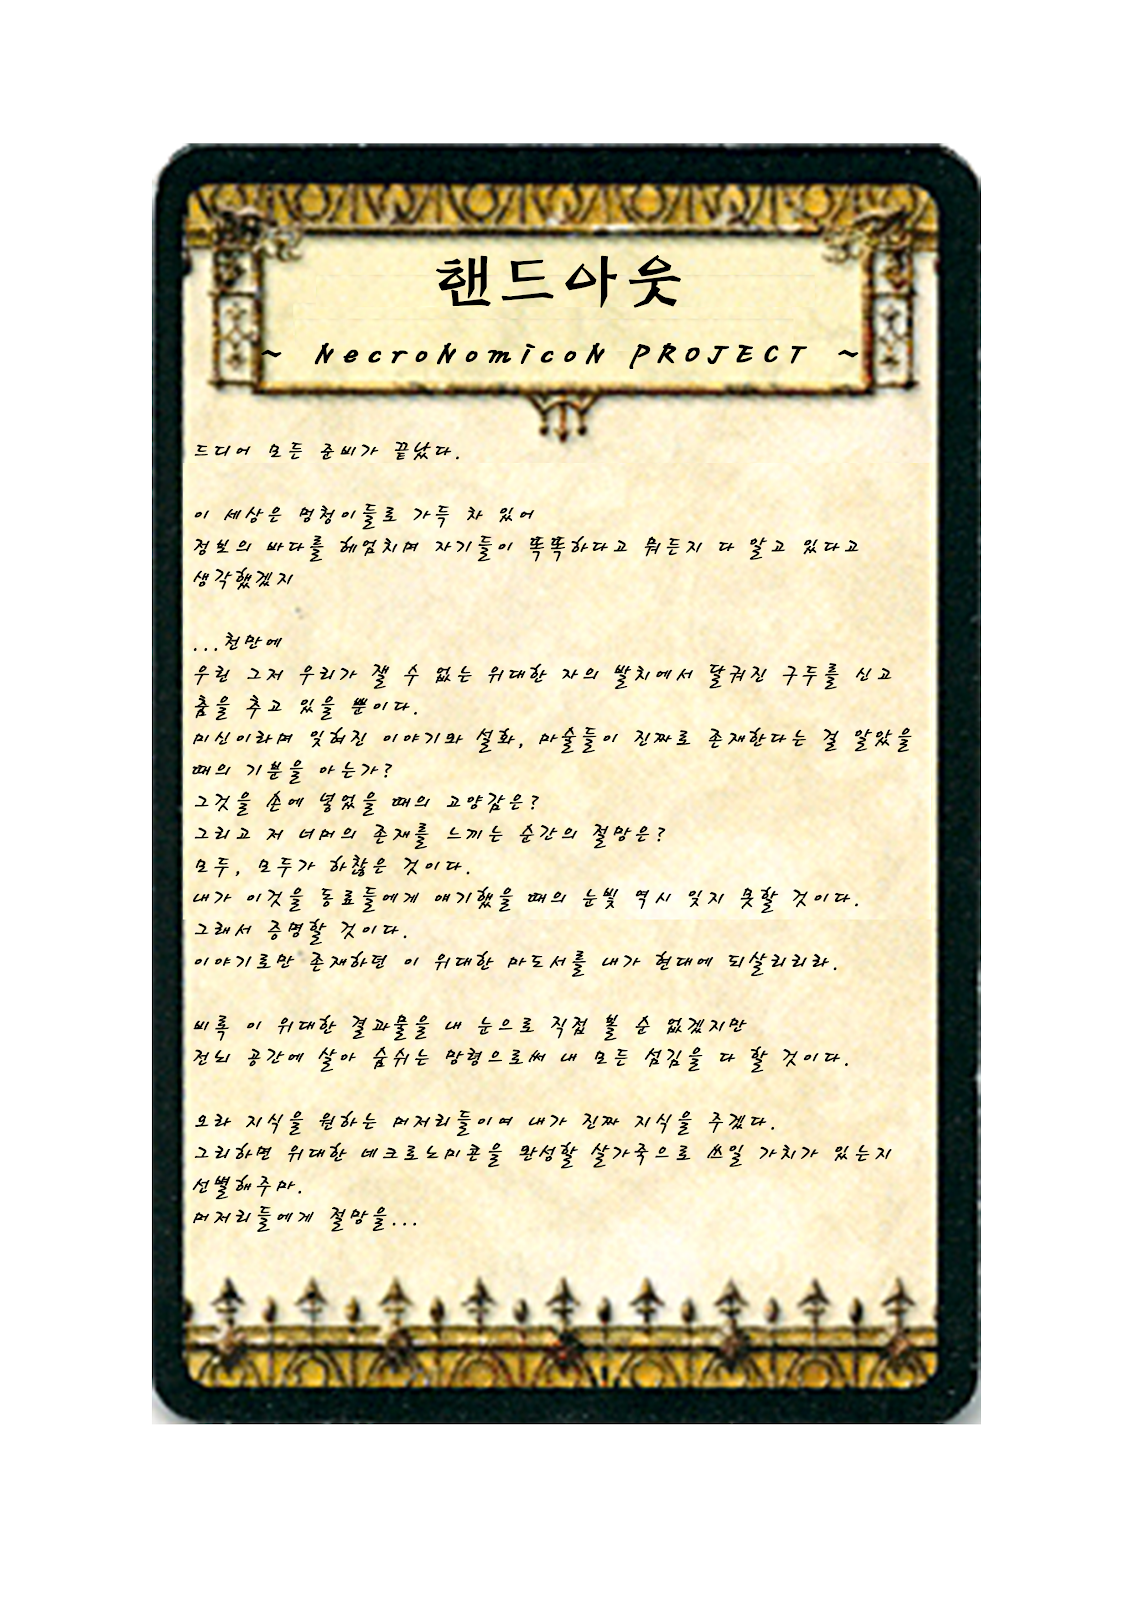 핸드아웃
~ NecroNomicoN PROJECT ~
드디어 모든 준비가 끝났다.
이 세상은 멍청이들로 가득 차 있어
정보의 바다를 헤엄치며 자기들이 똑똑하다고 뭐든지 다 알고 있다고
생각했겠지
...천만에
우린 그저 우리가 잴 수 없는 위대한 자의 발치에서 달궈진 구두를 신고
춤을 추고 있을 뿐이다.
미신이라며 잊혀진 이야기와 설화, 마술들이 진짜로 존재한다는 걸 알았을
때의 기분을 아는가?
그것을 손에 넣었을 때의 고양감은?
그리고 저 너머의 존재를 느끼는 순간의 절망은?
모두, 모두가 하찮은 것이다.
내가 이것을 동료들에게 얘기했을 때의 눈빛 역시 잊지 못할 것이다.
그래서 증명할 것이다.
이야기로만 존재하던 이 위대한 마도서를 내가 현대에 되살리리라.
비록 이 위대한 결과물을 내 눈으로 직접 볼 순 없겠지만
전뇌 공간에 살아 숨쉬는 망령으로써 내 모든 섬김을 다 할 것이다.
오라 지식을 원하는 머저리들이여 내가 진짜 지식을 주겠다.
그리하면 위대한 네크로노미콘을 완성할 살가죽으로 쓰일 가치가 있는지
선별해주마.
머저리들에게 절망을...